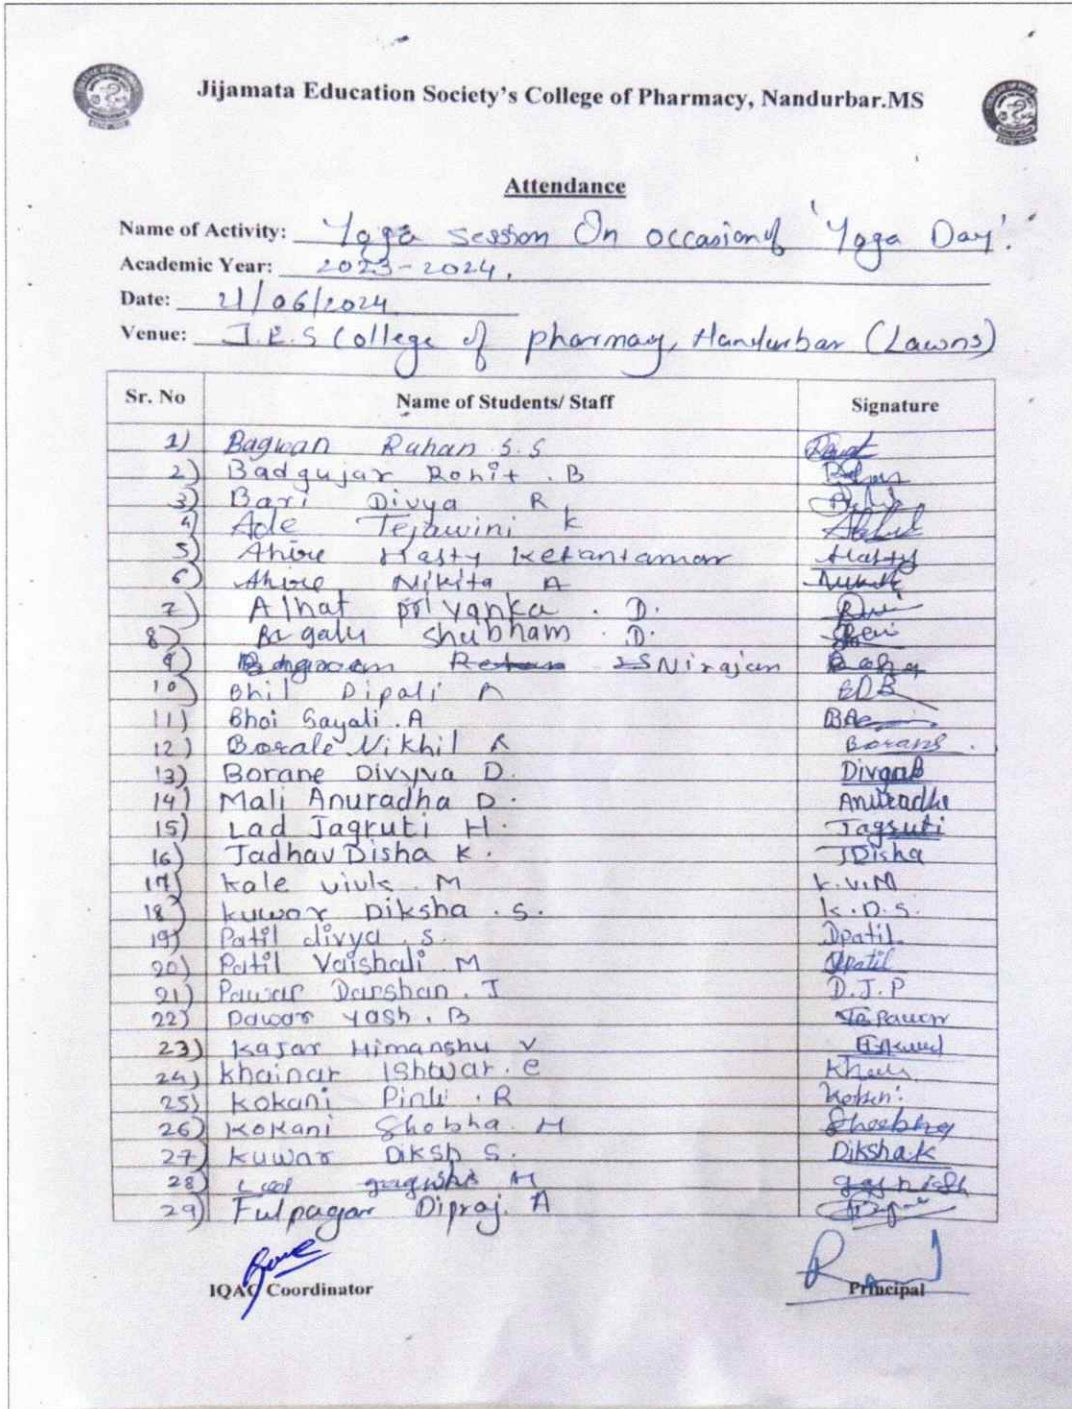 Jijamata Education Society's College of Pharmacy, Nandurbar.MS
Attendance
Name of Activity: Yoga Session On occasion of 'Yoga Day'.
Academic Year: 2023-2024.
Date: 21/06/2024
Venue: J.E.S College of pharmacy, Nandurbar (Lawns)
Sr. No Name of Students/ Staff Signature
1) Bagwan Rahan S.S
2) Badgujar Rohit . B
3) Bari Divya R
4) Ade Tejawini K
5) Ahire Hasty Ketantamar Hasty
6) Ahire Nikita A
7) Alhat priyanka . D.
8) Bagaly Shubham . D.
9) Nirajan
10) Bhil Dipali A EDB
11) Bhoi Sayali .A
12) Borale Nikhil R Borans.
13) Borane Divyva D.
14) Mali Anuradha D. Anuradha
15) Lad Jagruti H. Jagruti
16) Jadhav Disha K. JDisha
17) kale viuls . M K.V.M
18) kuwar Diksha . S. K.D.S.
19) Patil divya . S. Dpatil
20) Patil Vaishali . M Vpatil
21) Pawar Darshan . J D.J.P
22) Pawar Yash . B
23) Kasar Himanshu V
24) khainar Ishwar. e
25) Kokani Pinki . R
26) Kokani Shobha. M
27) kuwar Diksh S. Diksha.k
28)
29) Fulpagar Dipraj. A
IQAC Coordinator Principal